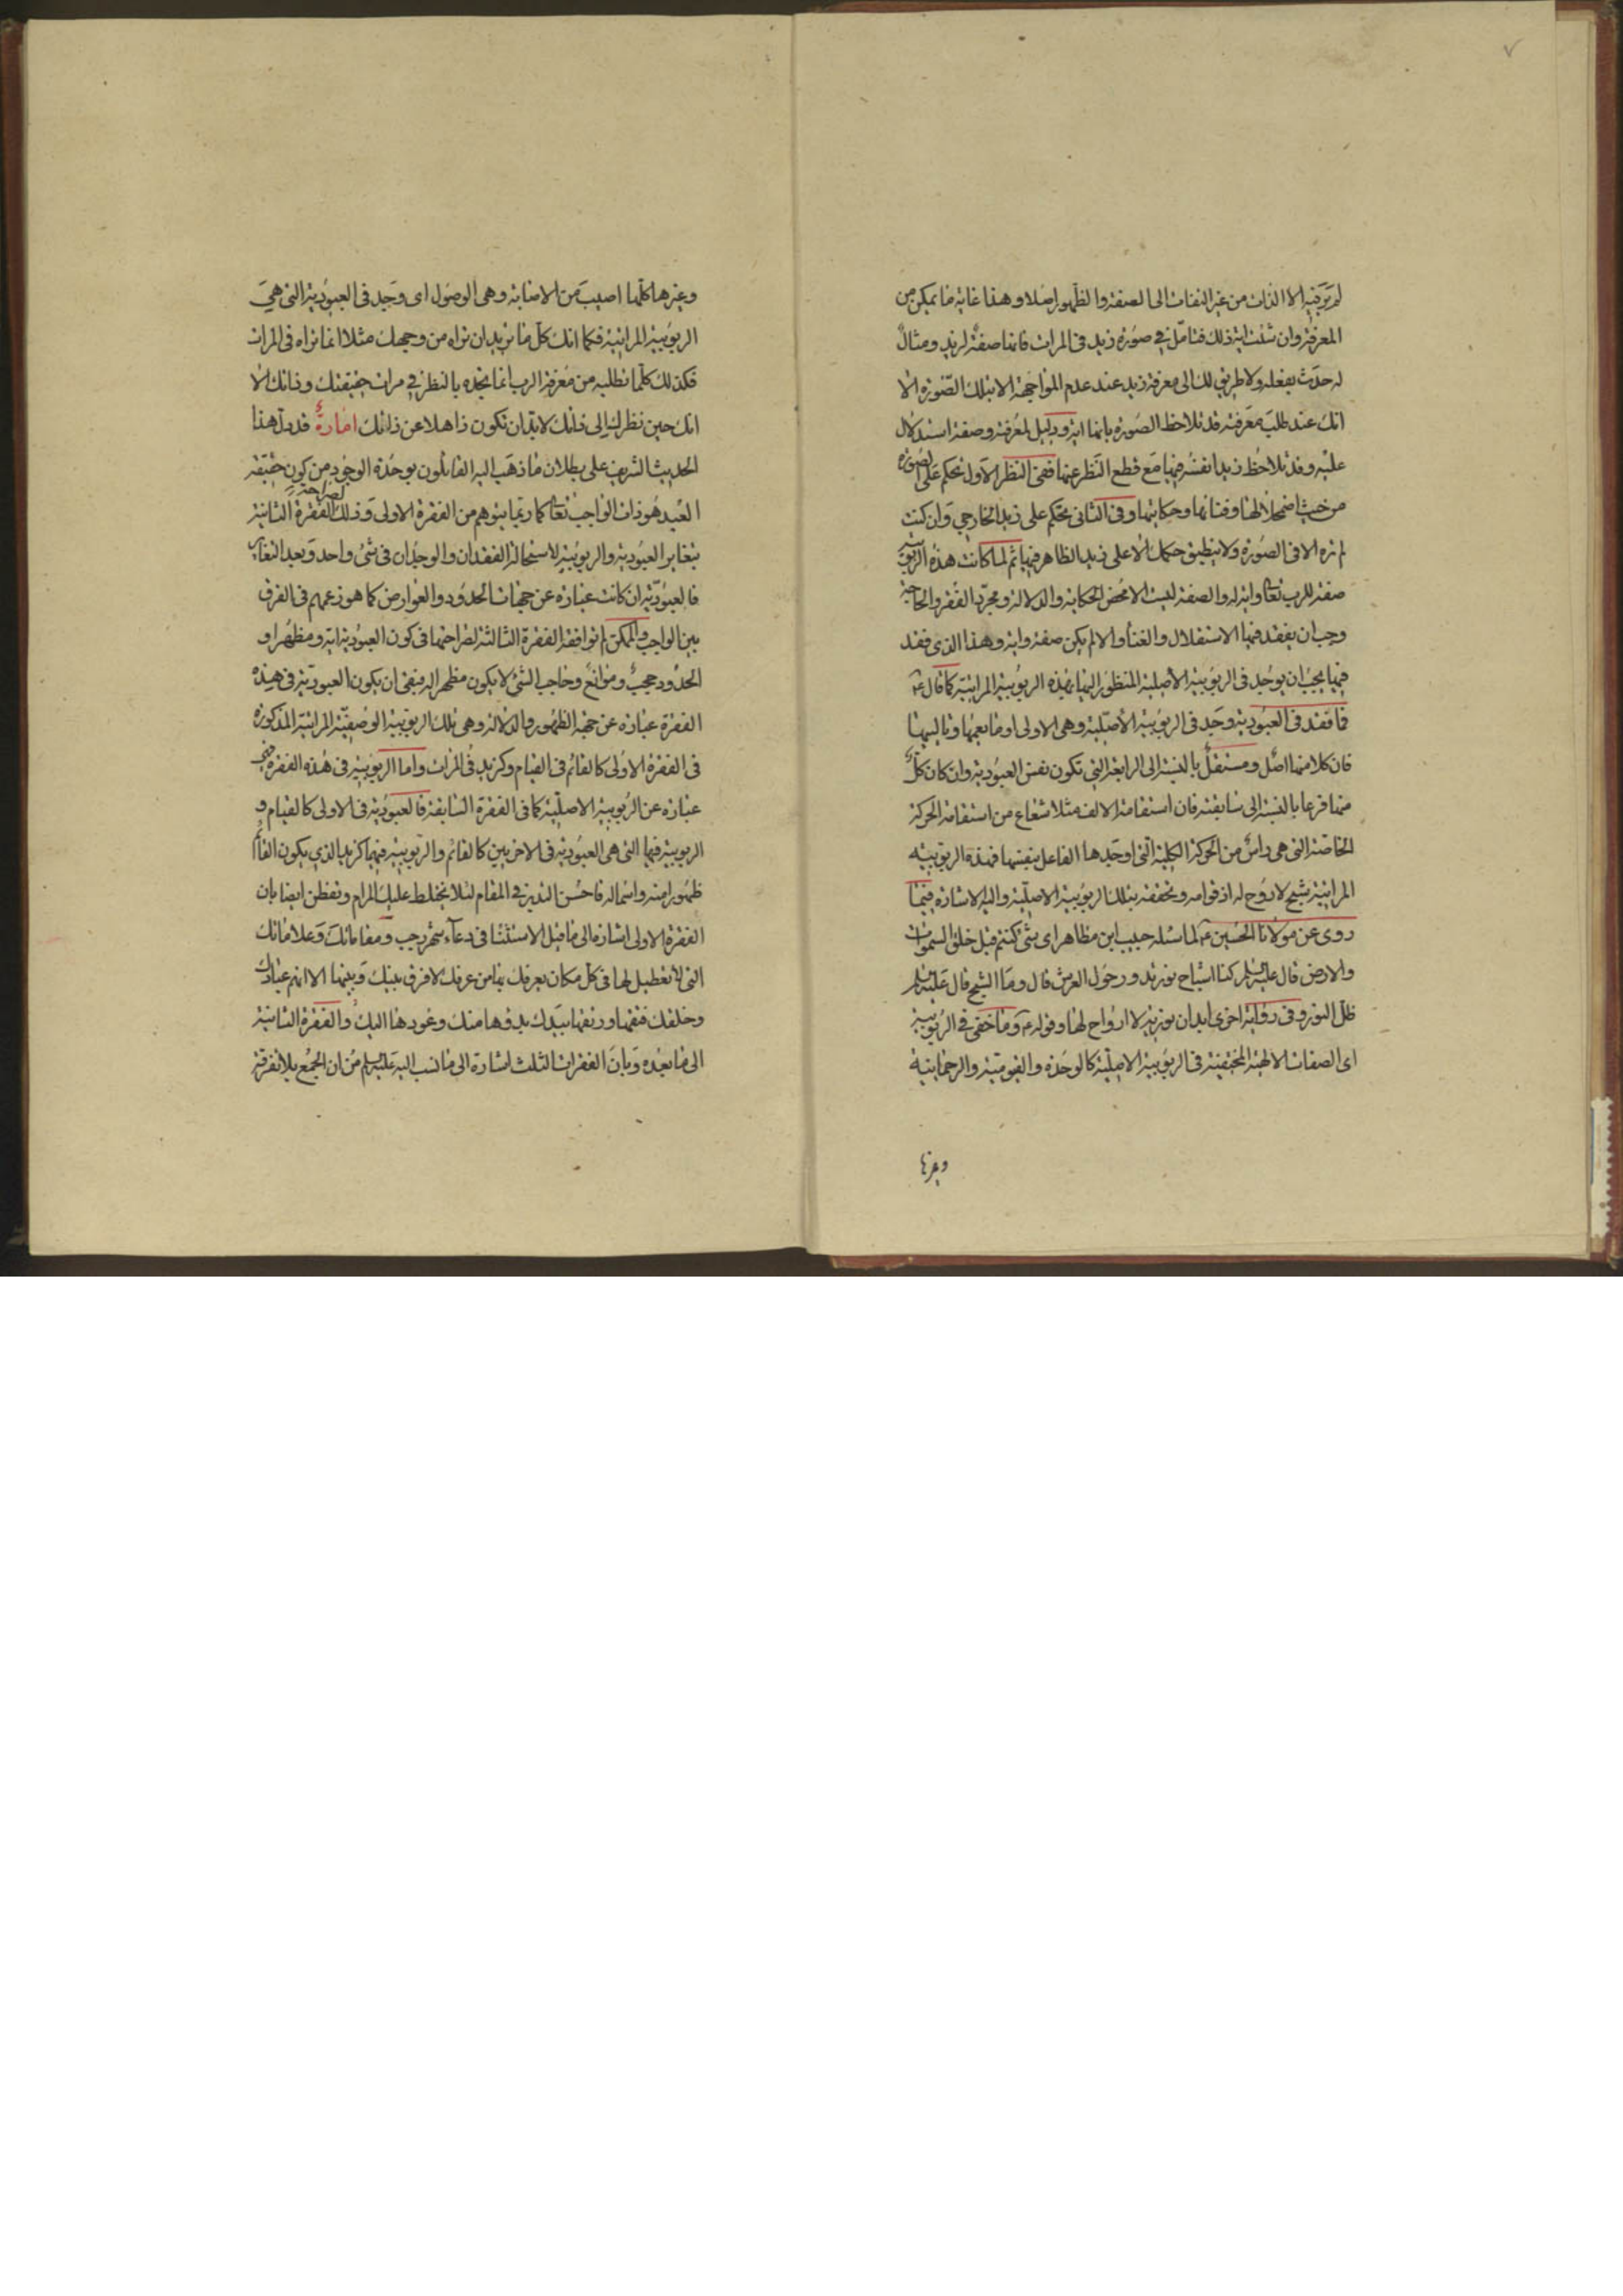 ٧
لم تر فيه الا الذات من غير التفات الى الصفة والظهور اصلا وهذا غاية ما يمكن من
المعرفة وان شئت اية ذلك فتأمل في صورة زيد في المرات فانها صفة لزيد ومثال
له حدث بفعله ولا طريق لك الى معرفة زيد عند عدم المواجهة الا بتلك الصورة الا
انك عند طلب معرفته قد تلاحظ الصورة بانها اية ودليل لمعرفته وصفة استدلال
عليه وقد تلاحظ زيدا نفسه فيها مع قطع النظر عنها ففي النظر الاول تحكم على الصورة
من حيث اضمحلالها وفنائها وحكايتها وفى الثانى تحكم على زيد الخارجي وان كنت
لم تره الا فى الصورة ولا ينطبق حكمك الا على زيد الظاهر فيها ثم لما كانت هذه الربوبية
صفة للرب تعا واية له والصفة ليست الا محض الحكاية والدلالة ومجرد الفقر والحاجة
وجب ان يفقد فيها الاستقلال والغنا والا لم يكن صفة واية وهذا الذى فقد
فيها يجب ان يوجد فى الربوبية الأصلية المنظور اليها بهذه الربوبية المراتية كما قال ع
فما فقد فى العبودية وجد فى الربوبية الأصلية وهى الاولى او ما يعمها وتالييها
فان كلا منها اصل ومستقل بالنسبة الى الرابعة التي تكون نفس العبودية وان كان كل
منها فرعا بالنسبة الى سابقته فان استقامة الالف مثلا شعاع من استقامة الحركة
الخاصة التى هى رأس من الحركة الكلية التى اوجدها الفاعل بنفسها فهذه الربوبية
المراتية شبح لا روح له اذ قوامه وتحققه بتلك الربوبية الاصلية واليه الاشارة فيما
روى عن مولانا الحسين ع لما سئله حبيب ابن مظاهر اى شئ كنتم قبل خلق السموات
والارض قال عليه السلم كنا اشباح نور ندور حول العرش قال وما الشبح قال عليه السلم
ظل النور وفى رواية اخرى ابدان نورية لا ارواح لها وقوله ع وما خفى في الربوبية
اى الصفات الالهية المختفية فى الربوبية الاصلية كالوحدة والقيومية والرحمانية
وغيرها
وغيرها كلها اصيب من الاصابة وهى الوصول اى وجد فى العبودية التى هى
الربوبية المراتية فكما انك كل ما تريد ان تراه من وجهك مثلا انما تراه فى المرات
فكذلك كلما تطلبه من معرفة الرب انما تجده بالنظر في مرات حقيقتك وذاتك الا
انك حين نظرك الى ذاتك لا بد ان تكون ذاهلا عن ذاتك اشارة قد دل هذا
الحديث الشريف على بطلان ما ذهب اليه القائلون بوحدة الوجود من كون حقيقة
العبد هو ذات الواجب تعا كما ربما يتوهم من الفقرة الاولى وذلك لصراحة الفقرة الثانية
بتغاير العبودية والربوبية لاستحالة الفقدان والوجدان فى شئ واحد وبعد التغاير
فالعبودية ان كانت عبارة عن جهات الحدود والعوارض كما هو زعمهم فى الفرق
بين الواجب والممكن لم توافقه الفقرة الثالثة لصراحتها فى كون العبودية اية ومظهرا و
الحدود حجب وموانع وحاجب الشئ لا يكون مظهرا له فبقى ان يكون العبودية فى هذه
الفقرة عبارة عن جهة الظهور والدلالة وهى تلك الربوبية الوصفية المراتية المذكورة
فى الفقرة الاولى كالقائم فى القيام وكزيد فى المرات واما الربوبية فى هذه الفقرة فهى
عبارة عن الربوبية الاصلية كما فى الفقرة السابقة فالعبودية فى الاولى كالقيام و
الربوبية فيها التى هى العبودية فى الاخريين كالقائم والربوبية فيهما كزيد الذي يكون القائم
ظهورا منه واسما له فاحسن التدبر في المقام لئلا يختلط عليك المرام وتفطن ايضا بان
الفقرة الاولى اشارة الى ما قبل الاستثنا فى دعاء شهر رجب ومقاماتك وعلاماتك
التى لا تعطيل لها فى كل مكان يعرفك بها من عرفك لا فرق بينك وبينها الا انهم عبادك
وخلقك فتقها ورتقها بيدك بدؤها منك وعودها اليك والفقرة الثانية
الى ما بعده وبان الفقرات الثلث اشارة الى ما نسب اليه عليه السلم من ان الجمع بلا تفرقة